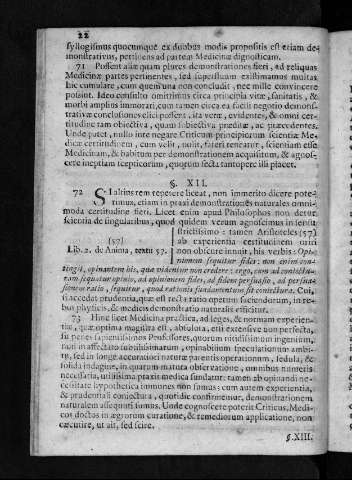 22
syllogismus quocumque ex duobus modis propositis est etiam de-
monstrativus, pertinens ad partem Medicinæ dignosticam.
71 Possent aliæ quam plures demonstrationes fieri, ad reliquas
Medicinæ partes pertinentes, sed superfluum existimamus multas
hic cumulare, cum quem una non concludit, nec mille convincere
possint. Ideo consulto omittimus circa principia vitæ, sanitatis, &
morbi amplius immorari, cum tamen circa ea facili negotio demons-
trativæ conclusiones elici possent, ita veræ, evidentes, & omni cer-
titudine tam obiectiva, quam subiectiva præditæ, ac præcedentes.
Unde patet, nullo iure negare Criticum principiorum scientiæ Me-
dicæ certitudinem, cum velit, nolit, fateri teneatur, scientiam esse
Medicinam, & habitum per demonstrationem acquisitum, & agnos-
cere ineptiam scepticorum, quorum secta tantopere illi placet.
§. XII.
72 SI altius rem repetere liceat, non immerito dicere pote-
rimus, etiam in praxi demonstrationes naturales omni-
moda certitudine fieri. Licet enim apud Philosophos non detur
scientia de singularibus, quod quidem verum agnoscimus in sensu
strictissimo: tamen Aristoteles (57)
(57) ab experientia certitudinem oriri
Lib. 2. de Anima, textu 57. non obscure innuit, his verbis: Opi-
nionem sequitur fides: non enim con-
tingit, opinantem his, quæ videntur non credere: ergo, cum ad conjectu-
ram sequatur opinio, ad opinionem fides, ad fidem persuasio, ad persua-
sionem ratio, sequitur, quod rationis fundamentum sit conjectura. Cui,
si accedat prudentia, quæ est recta ratio operum faciendorum, in re-
bus physicis, & medicis demonstratio naturalis efficitur.
73 Hinc licet Medicina practica, ad leges, & normam experien-
tiæ, quæ optima magistra est, absoluta, etsi extensive non perfecta,
su peret sapientissimos Professores, quorum nitidissimum ingenium,
non in affectato subtilissimarum, opinabilium speculationum ambi-
tu, sed in longe accuratiori naturæ parentis operationum, sedula, &
solida indagine, in quarum matura observatione, omnibus numeris
necessaria, utilissima praxis medica fundatur: tamen ab opinandi ne-
cessitate hypothetica immunes non sumus: cum autem experientia,
& prudentiali conjectura, quotidie confirmentur, demonstrationem
naturalem assequuti sumus. Unde cognoscere poterit Criticus, Medi-
cos doctos in ægrorum curatione, & remediorum applicatione, non
cæcutire, ut ait, sed scire.
§. XIII.